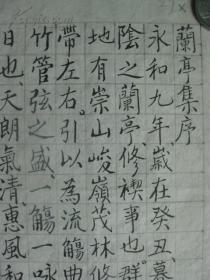 蘭亭集序
永和九年歲在癸丑暮
陰之蘭亭修禊事也群
地有崇山峻嶺茂林修
帶左右引以為流觴曲
竹管弦之盛一觴一咏
日也天朗氣清惠風和